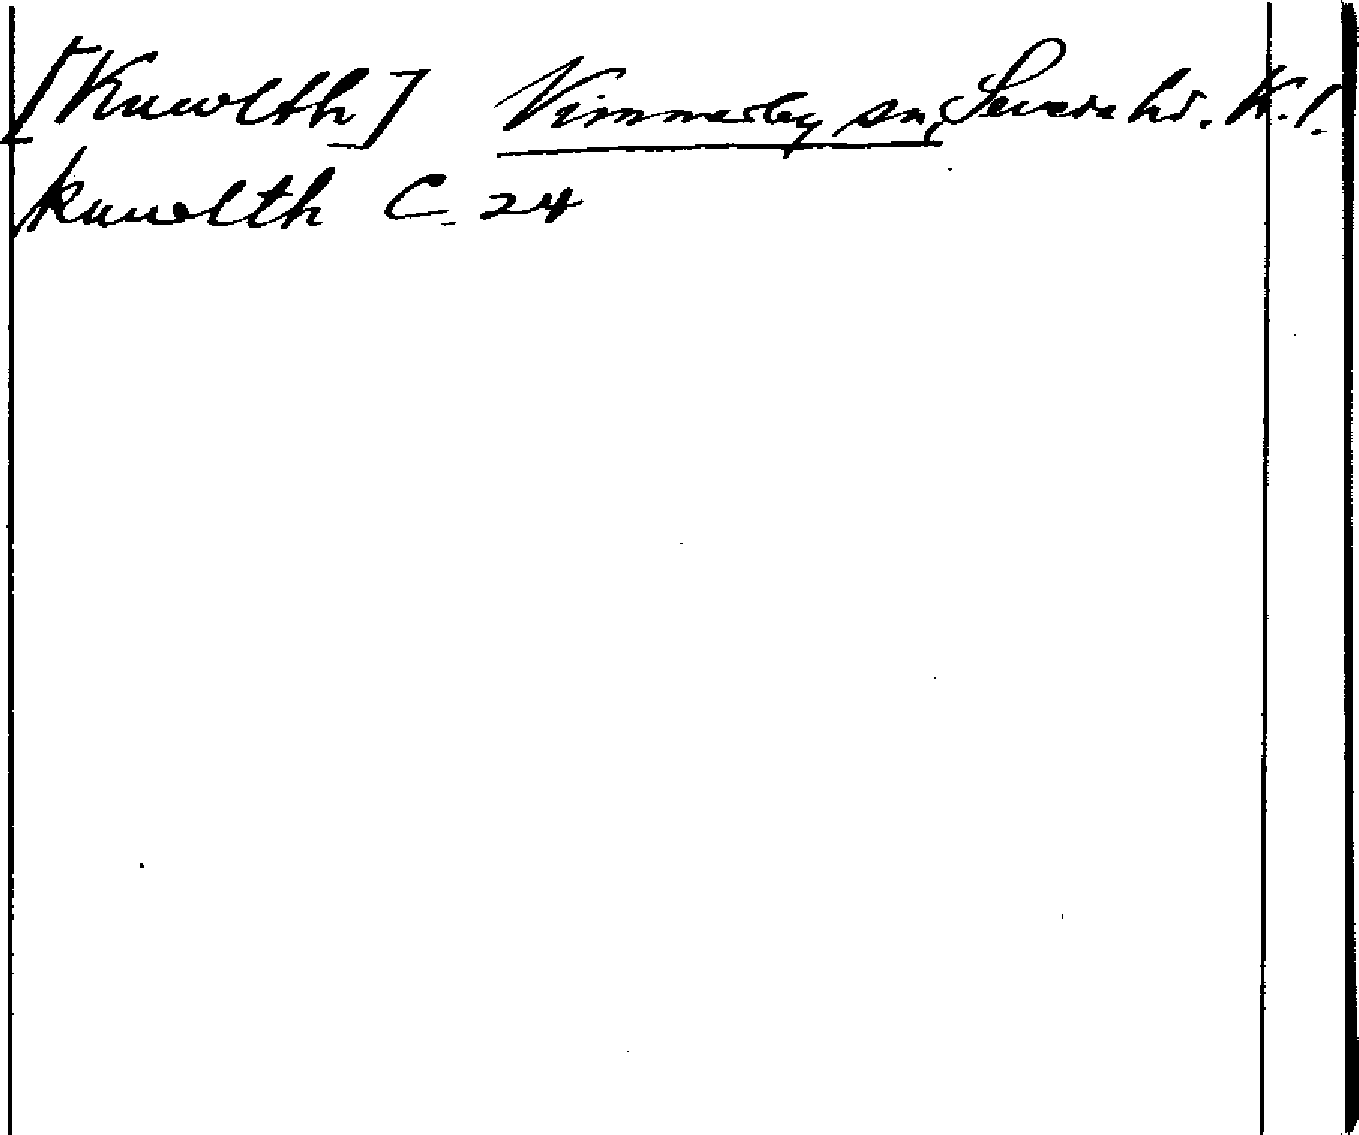 [Knuolth] Vimmerby sn, Sevede hd. K.l.
knuolth C. 24